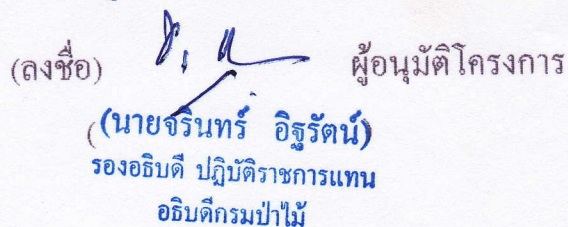 (ลงชื่อ) ผู้อนุมัติโครงการ
(นายจรินทร์ อิฐรัตน์)
รองอธิบดี ปฏิบัติราชการแทน
อธิบดีกรมป่าไม้